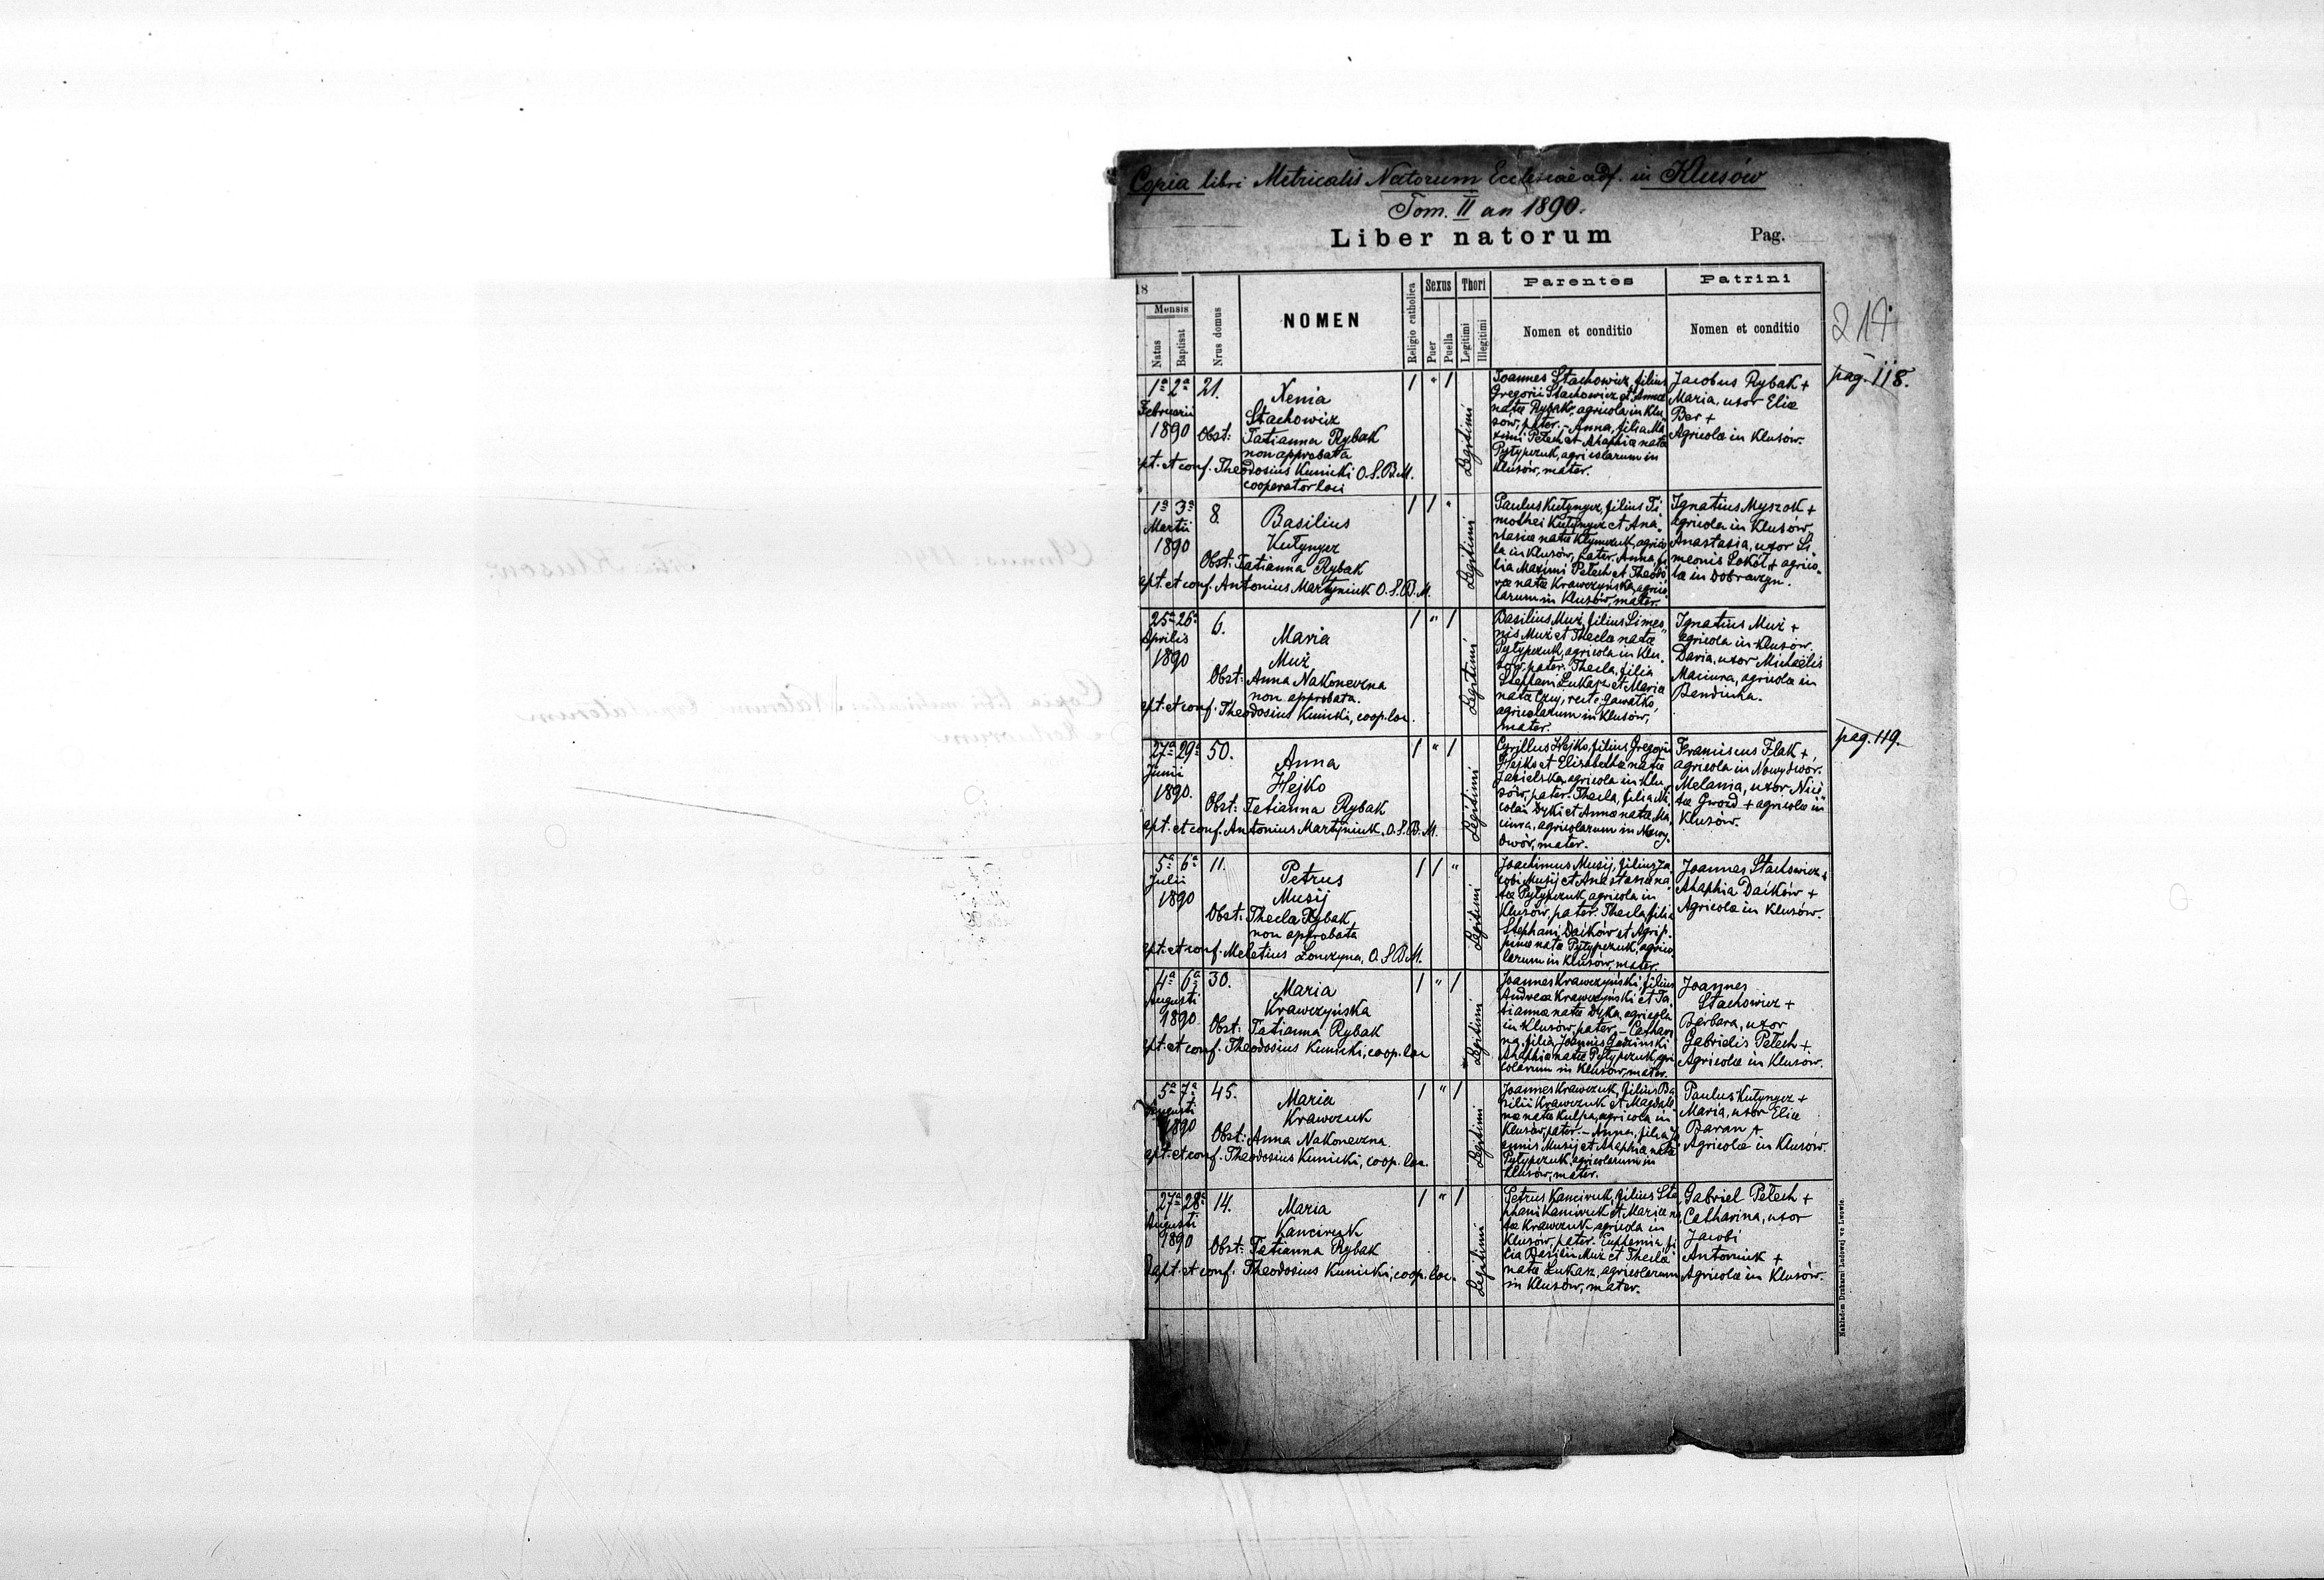 Copia libri Metricalis Natorum Ecclesiae adf. in Klusów
Tom. II an 1890.
Liber natorum Pag.
18
Mensis
Natus
Baptisat
Nrus domus
NOMEN
Religio catholica
Sexus
Puer
Puella
Thori
Legitimi
Illegitimi
Parentes
Nomen et conditio
Patrini
Nomen et conditio
217.
pag. 118.
1a 2a
Februarii
1890
21.
Xenia
Stachowicz
Obst: Tatianna Rybak
non approbata
pt. et conf. Theodosius Kunicki O.S.B.M.
cooperator loci
1 " 1
Legitimi
Joannes Stachowicz, filius
Gregorii Stachowicz et Annae
natae Rybak, agricola in Klu
sów, pater. - Anna, filia Ma
ximi Pełech et Ahaphiae natae
Pyłypczuk, agricolarum in
Klusów, mater.
Jacobus Rybak +
Maria, uxor Eliae
Ber +
Agricolae in Klusów.
1a 3a
Martii
1890
8.
Basilius
Kutynycz
Obst: Tatianna Rybak
apt. et conf. Antonius Martyniuk O.S.B.M.
1 1 "
Legitimi
Paulus Kutynycz, filius Ti
mothei Kutynycz et Ana
stasiae natae Kłymczuk, agrico
la in Klusów, pater. Anna, fi
lia Maximi Pełech et Theodo
rae natae Krawczyńska, agrico
larum in Klusów, mater.
Ignatius Myszok +
agricola in Klusów.
Anastasia, uxor Si
meonis Sokół + agrico
lae in Dobraczyn.
25a 26a
Aprilis
1890
6.
Maria
Muż
Obst: Anna Nakoneczna
non approbata.
apt. et conf. Theodosius Kunicki, coop. loc.
1 " 1
Legitimi
Basilius Muż, filius Simeo
nis Muż et Theclae natae
Pyłypczuk, agricola in Klu
sów, pater. Thecla, filia
Stephani Łukasz et Mariae
natae Czuj, recte Gawałko,
agricolarum in Klusów,
mater.
Ignatius Muż +
agricola in Klusów.
Daria, uxor Michaëlis
Maciura, agricolae in
Benduha.
pag. 119.
27a 29a
Junii
1890.
50.
Anna
Hejko
Obst: Tatianna Rybak
apt. et conf. Antonius Martyniuk, O.S.B.M.
1 " 1
Legitimi
Cyrillus Hejko, filius Gregorii
Hejko et Elisabethae natae
Jasielska, agricola in Klu
sów, pater. Thecla, filia Ni
colai Dyki et Annae natae Ma
ciura, agricolarum in Nowy
dwór, mater.
Franciscus Flak +
agricola in Nowydwór.
Melania, uxor Nici
tae Gwozd + agricolae in
Klusów.
5a 6a
Julii
1890
11.
Petrus
Musij
Obst: Thecla Rybak
non approbata
pt. et conf. Meletius Łonczyna, O.S.B.M.
1 1 "
Legitimi
Joachimus Musij, filius Ja
cobi Musij et Anastasiae na
tae Pyłypczuk, agricola in
Klusów, pater. Thecla, filia
Stephani Daików et Agrip
pinae natae Pyłypczuk, agrico
larum in Klusów, mater.
Joannes Stachowicz +
Ahaphia Daików +
Agricolae in Klusów.
4a 6a
Augusti
1890
30.
Maria
Krawczyńska
Obst: Tatianna Rybak
pt. et conf. Theodosius Kunicki, coop. loc
1 " 1
Legitimi
Joannes Krawczyński, filius
Andreae Krawczyński et Ta
tiannae natae Dyka, agricola
in Klusów, pater. - Cathari
na, filia Joannis
Ahaphiae natae Pyłypczuk, agri
colarum in Klusów, mater.
Joannes
Stachowicz +
Barbara, uxor
Gabrielis Pełech +
Agricolae in Klusów.
5a 7a
Augusti
1890
45.
Maria
Krawczuk
Obst: Anna Nakoneczna
apt. et conf. Theodosius Kunicki, coop. loc.
1 " 1
Legitimi
Joannes Krawczuk, filius Ba
silii Krawczuk et Magdale
nae natae Kulpa, agricola in
Klusów, pater. - Anna, filia Jo
annis Musij et Ahaphiae natae
Pyłypczuk, agricolarum in
Klusów, mater.
Paulus Kutynycz +
Maria, uxor Eliae
Baran +
Agricolae in Klusów.
27a 28a
Augusti
1890
14.
Maria
Kanciruk
Obst: Tatianna Rybak
Bapt. et conf. Theodosius Kunicki, coop. loc.
1 " 1
Legitimi
Petrus Kanciruk, filius Ste
phani Kanciruk et Mariae na
tae Krawczuk, agricola in
Klusów, pater. Euphemia, fi
lia Basilii Muż et Theclae
natae Łukasz, agricolarum
in Klusów, mater.
Gabriel Pełech +
Catharina, uxor
Jacobi
Antoniuk +
Agricolae in Klusów.
Nakładem Drukarni Ludowej we Lwowie.